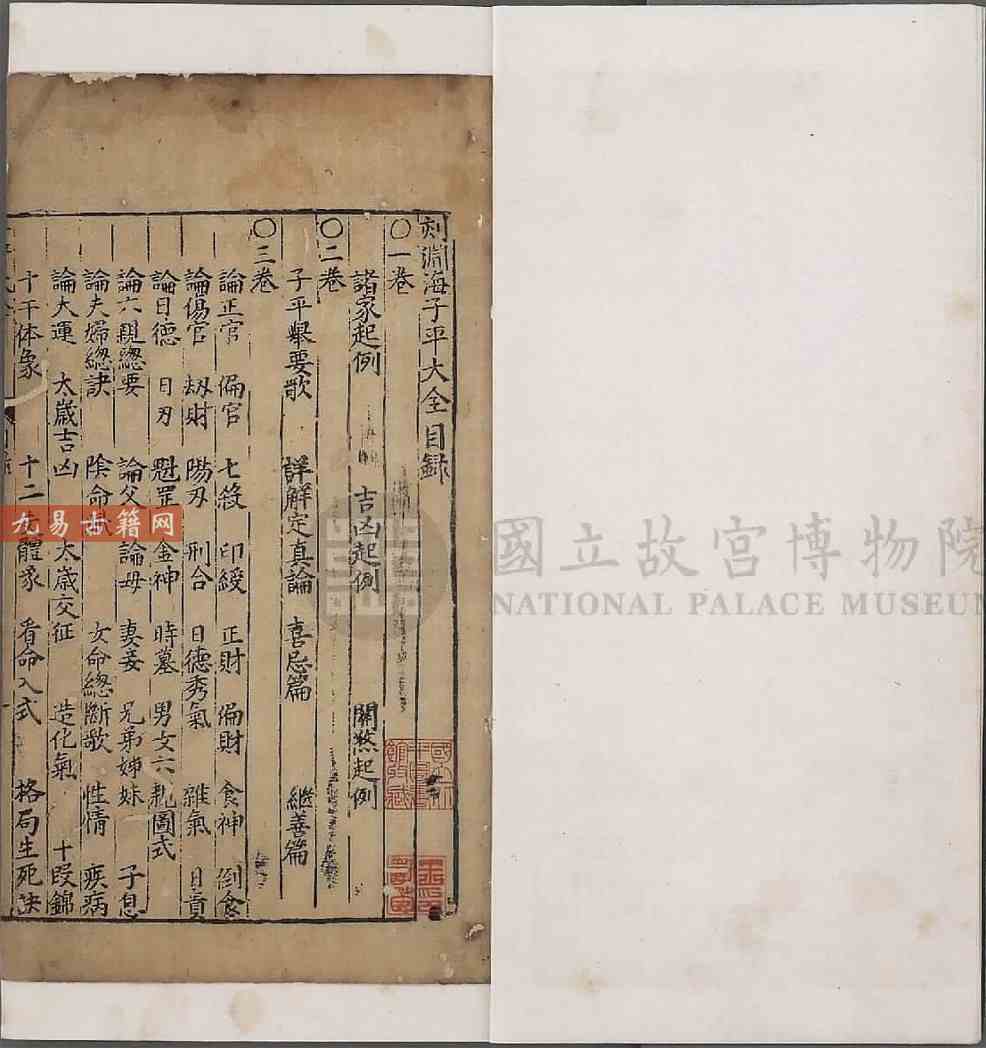 刻淵海子平大全目録
〇一卷
諸家起例 吉凶起例 關煞起例
〇二卷
子平舉要歌 詳解定真論 喜忌篇 継善篇
〇三卷
論正官 偏官 七殺 印綬 正財 偏財 食神 倒食
論傷官 刼財 陽刃 刑合 日德秀氣 雜氣 日貴
論日德 日刃 魁罡 金神 時墓 男女六親圖式
論六親總要 論父 論母 妻妾 兄弟姊妹 子息
論夫婦總訣 陰命 女命總斷歌 性情 疾病
論大運 太歲吉凶 太歲交征 造化氣 十叚錦
十干体象 十二 體象 看命入式 格局生死訣
九易古籍网
國立故宮博物院
NATIONAL PALACE MUSEUM